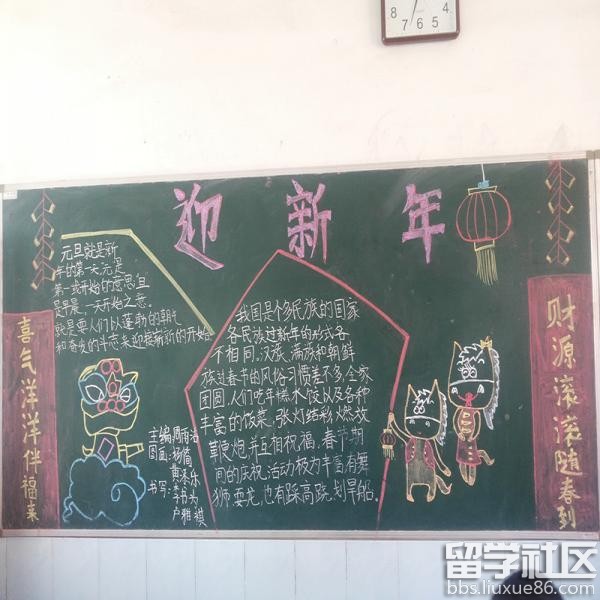 8
4
7 6 5
迎新年
元旦就是新
年的第一天,元是
第一或开始的意思,旦
是早晨,一天开始之意.
就是要人们以蓬勃的朝气
和奋发的斗志来迎接崭新的开始.
喜气洋洋伴福来
我国是个多民族的国家
各民族过新年的形式各
不相同.汉族、满族和朝鲜
族过春节的风俗习惯差不多,全家
团圆,人们吃年糕、水饺以及各种
丰富的饭菜,张灯结彩,燃放
鞭炮,并互相祝福,春节期
间的庆祝活动极为丰富,有舞
狮、耍龙,也有踩高跷、划旱船。
财源滚滚随春到
主编:周雨洁
图画:杨简
书写:
留学社区
bbs.liuxue86.com